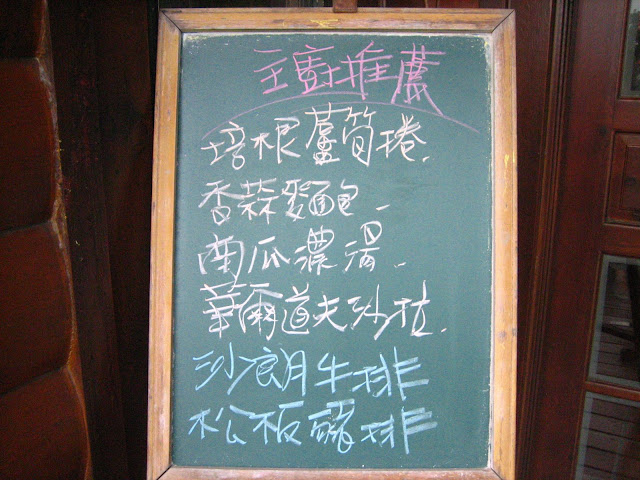 主廚推薦
培根蘆筍捲.
香蒜麵包.
南瓜濃湯.
華爾道夫沙拉.
沙朗牛排
松板豬排